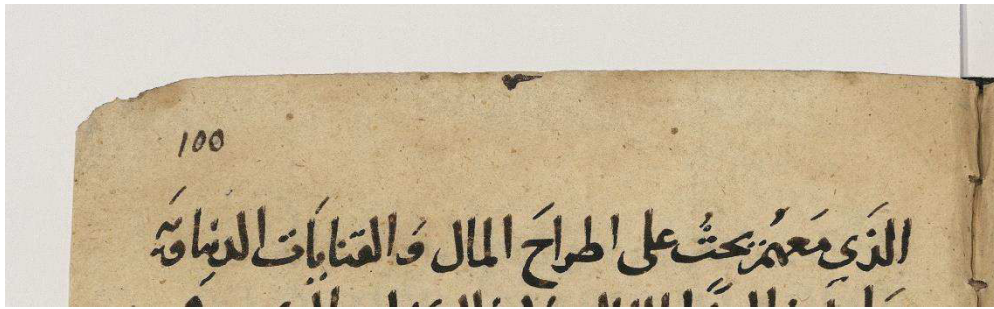 100
الذَى مَعهُم بحثُ على اطراحَ المال وَالقنايَات الدنياويَة